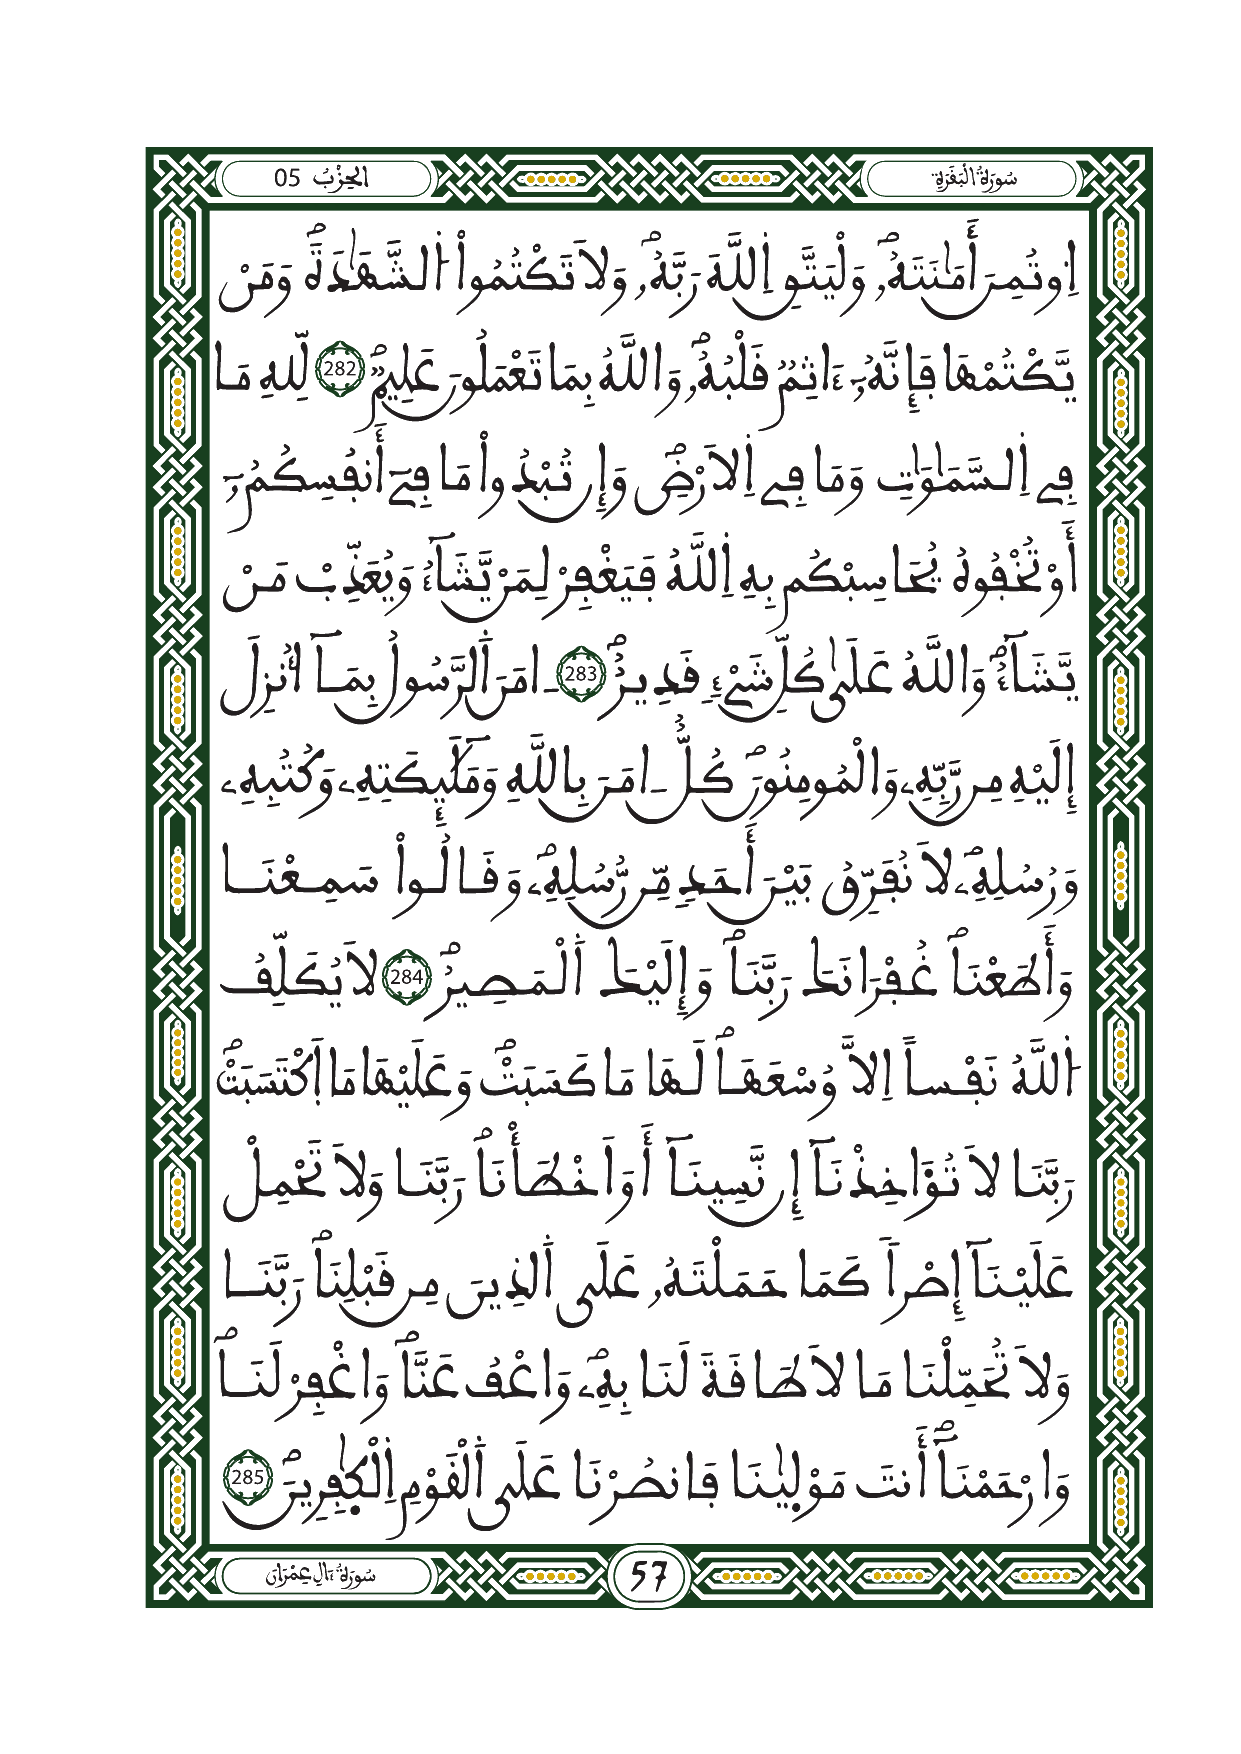 سُورَةُ الْبَقَرَةِ
الْحِزْبُ 05
اِ۟وتُمِنَ أَمَٰنَتَهُۥۖ وَلْيَتَّقِ اِ۬للَّهَ رَبَّهُۥۖ وَلَا تَكْتُمُواْ اُ۬لشَّهَٰدَةَۖ وَمَنْ
يَّكْتُمْهَا فَإِنَّهُۥٓ ءَاثِمٞ قَلْبُهُۥۖ وَاللَّهُ بِمَا تَعْمَلُونَ عَلِيمٞۖ 282 لِّلهِ مَا
فِے اِ۬لسَّمَٰوَٰتِ وَمَا فِے اِ۬لَارْضِۖ وَإِن تُبْدُواْ مَا فِےٓ أَنفُسِكُمُۥٓ
أَوْ تُخْفُوهُ يُحَاسِبْكُم بِهِ اِ۬للَّهُ فَيَغْفِرْ لِمَنْ يَّشَآءُ وَيُعَذِّبْ مَنْ
يَّشَآءُۖ وَاللَّهُ عَلَىٰ كُلِّ شَےْءٖ قَدِيرٌۖ 283 ـ امَنَ اَ۬لرَّسُولُ بِمَآ أُنزِلَ
إِلَيْهِ مِن رَّبِّهِۦ وَالْمُومِنُونَۖ كُلٌّ ـ امَنَ بِاللَّهِ وَمَلَٰٓئِكَتِهِۦ وَكُتُبِهِۦ
وَرُسُلِهِۦۖ لَا نُفَرِّقُ بَيْنَ أَحَدٖ مِّن رُّسُلِهِۦۖ وَقَالُواْ سَمِعْنَا
وَأَطَعْنَاۖ غُفْرَانَكَ رَبَّنَاۖ وَإِلَيْكَ اَ۬لْمَصِيرُۖ 284 لَا يُكَلِّفُ
اُ۬للَّهُ نَفْساً اِلَّا وُسْعَهَاۖ لَهَا مَا كَسَبَتْۖ وَعَلَيْهَا مَا اَ۪كْتَسَبَتْۖ
رَبَّنَا لَا تُؤَاخِذْنَآ إِن نَّسِينَآ أَوَ اَخْطَأْنَاۖ رَبَّنَا وَلَا تَحْمِلْ
عَلَيْنَآ إِصْراً كَمَا حَمَلْتَهُۥ عَلَى اَ۬لذِينَ مِن قَبْلِنَاۖ رَبَّنَا
وَلَا تُحَمِّلْنَا مَا لَا طَاقَةَ لَنَا بِهِۦۖ وَاعْفُ عَنَّاۖ وَاغْفِرْ لَنَاۖ
وَارْحَمْنَآۖ أَنتَ مَوْلَيٰنَا فَانصُرْنَا عَلَى اَ۬لْقَوْمِ اِ۬لْكٰ۪فِرِينَۖ 285
سُورَةُ ءَالِ عِمْرَانَ
57